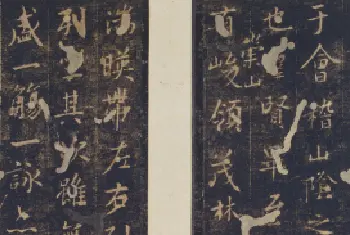 于會稽山陰之
也羣賢畢至
有崇山峻領茂林
湍暎帶左右引
列坐其次雖無
盛一觴一詠亦